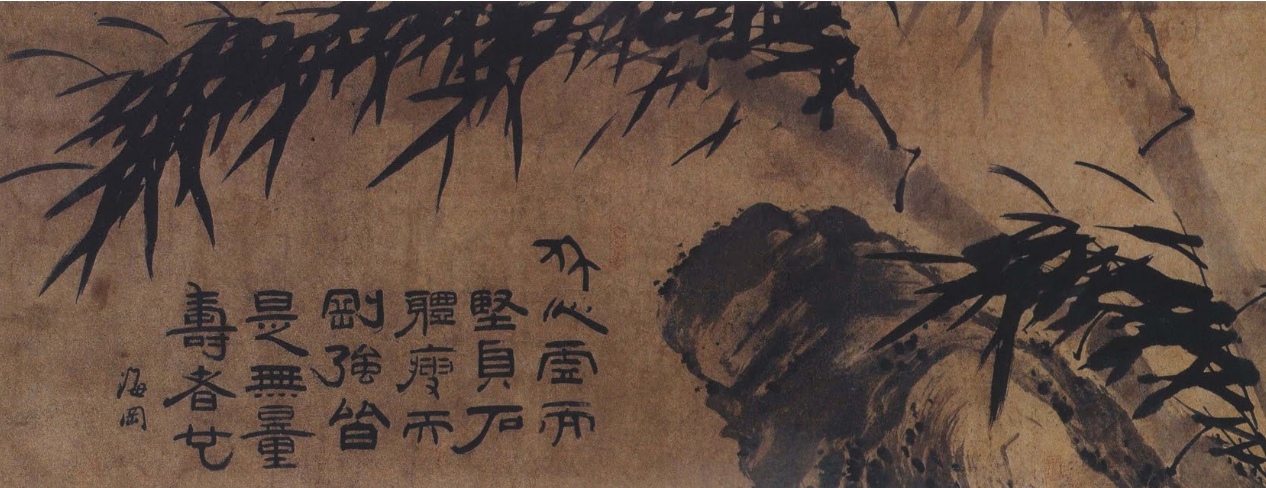 竹心虛而
堅貞石
體瘦而
剛強皆
是無量
壽者也
海岡